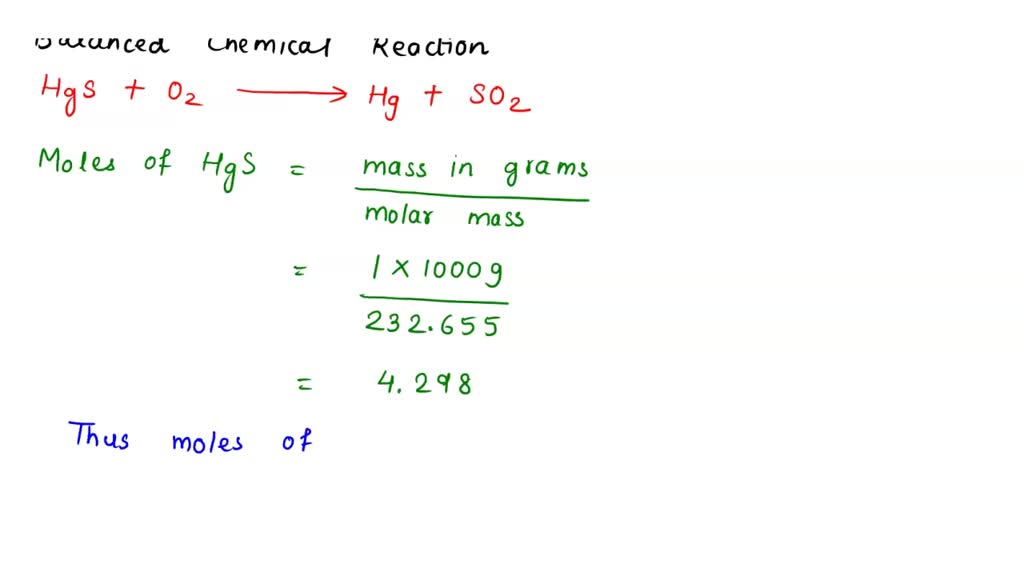 Balanced Chemical Reaction
HgS + O2 ⟶ Hg + SO2
Moles of HgS = mass in grams
molar mass
= 1 × 1000g
232.655
= 4.298
Thus moles of